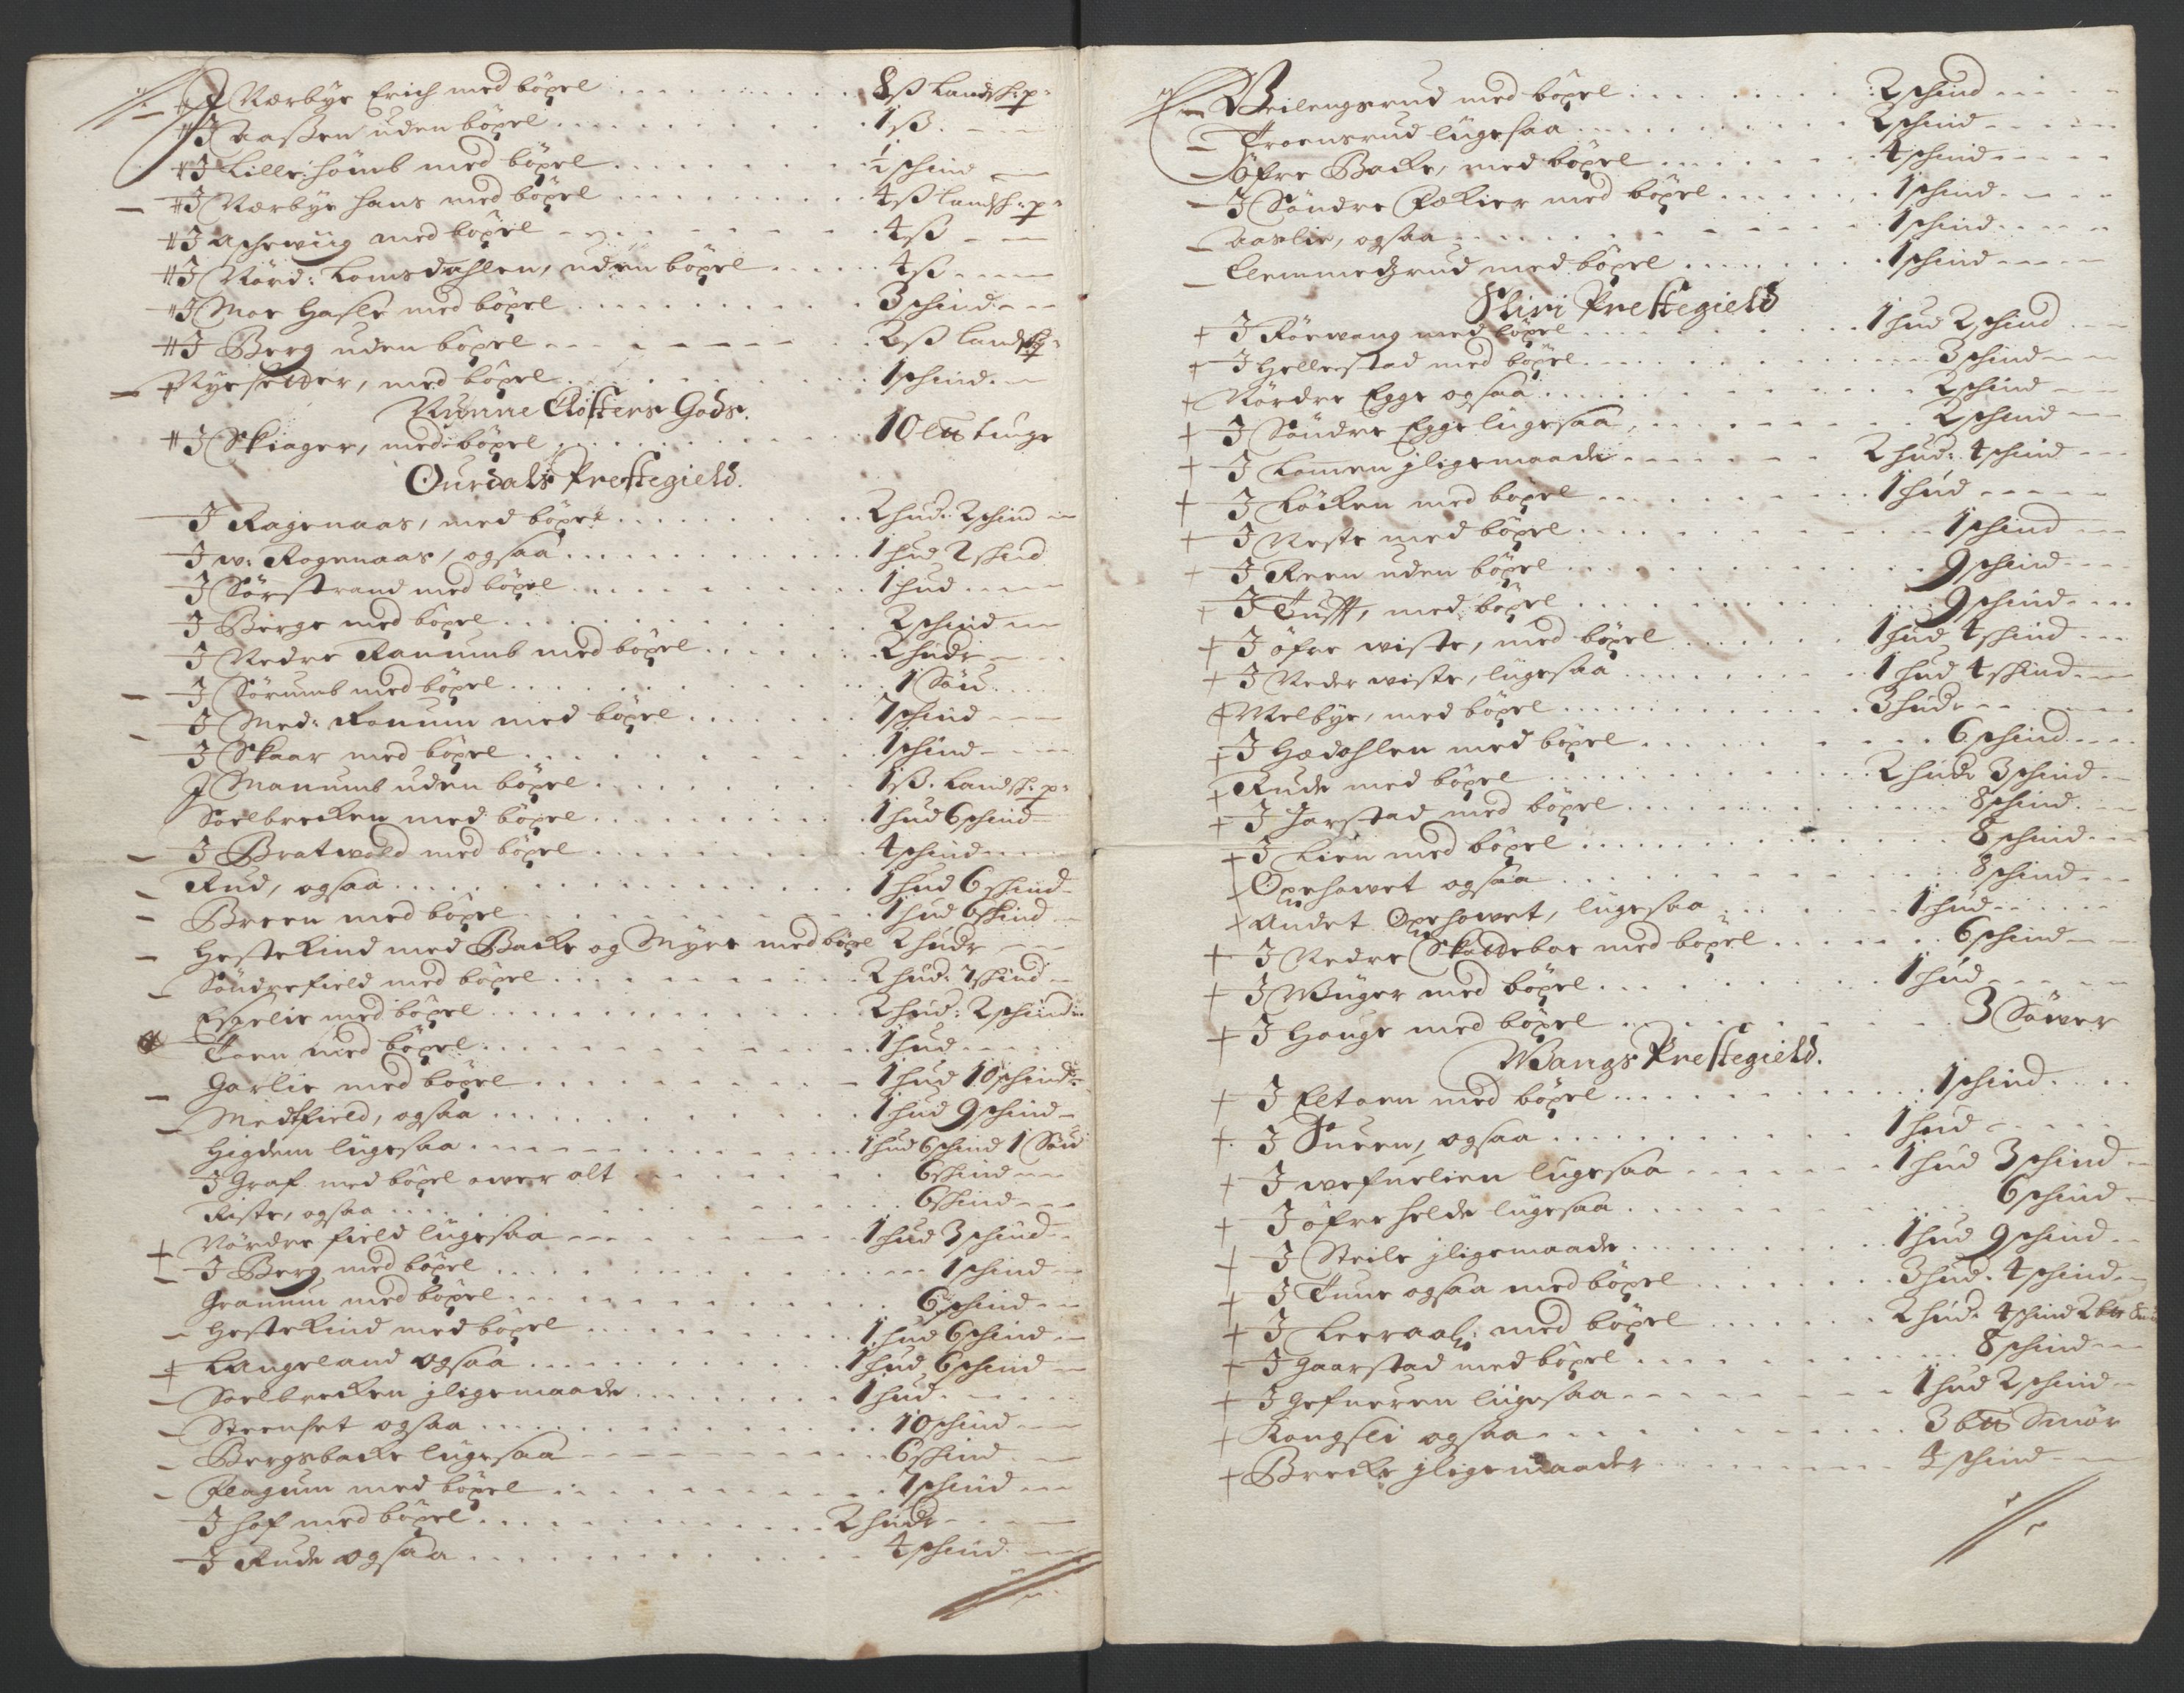 J Nærbye Erich med böxel 8 ß Landsh: p:
J Aassen uden böxel 1 ß.
J Lille hömb med böxel ½ schind
J Nærbye Hans med böxel 4 ß landsh: p:
J Aschewiig med böxel 4 ß
J Nörd: Lomsdahlen, uden böxel 4 ß
J Moe Hasle med böxel 3 schind
J Berg uden böxel 2 ß landsh: p:
Nyesetter, med böxel 1 schind.
Nunne Closters Gods.
J Skiager, med böxel 10 tunge
Ourdals Prestegield.
J Ragenaas, med böxel 2 hud: 2 schind
J w: Rogenaas, ogsaa 1 hud 2 schind
J Sörstrand med böxel 1 hud
J Berge med böxel 2 schind
J Nedre Ranumb med böxel 2 hude
J Sörumb med böxel 1 Söu
J Med: Ronum med böxel 7 schind
J Skaar med böxel 1 schind
J Manumb uden böxel 1 ß. Landsh: p:
Soelbrecken med böxel 1 hud 6 schind
J Bratwold med böxel 4 schind
Rud, ogsaa 1 hud 6 schind
Breen med böxel 1 hud 6 schind
Hestekind med Backe og Myre med böxel 2 hude
Söndrefield med böxel 2 hud: 7 schind
Espelie med böxel 2 hud: 2 schind
Toen med böxel 1 hud
Garlie med böxel 1 hud 10 schind
Medtfield, ogsaa 1 hud 9 schind
Higdem lügesaa 1 hud 6 schind 1 Söu
J Graf med böxel ower alt 6 schind
Riste, ogsaa 6 schind
Nördre field lügesaa 1 hud 3 schind
J Berg med böxel 1 schind
Granum med böxel 6 schind
Hestekind med böxel 1 hud 6 schind
Langeland ogsaa 1 hud 6 schind
Soelbrecken jligemaade 1 hud
Steenset ogsaa 10 schind
Bergsbacke lügesaa 6 schind
Flagum med böxel 1 schind
J Hof med böxel 2 hude
J Rude ogsaa 4 schind
Weilengsrud med böxel 2 schind
Troensrud lügesaa 2 schind
Öfre Backe, med böxel 4 schind
J Söndre Fækier med böxel 1 schind
Aaslie, ogsaa 1 schind
Clemmedzrud med böxel 1 schind
Sliri Prestegield
J Röewang med böxel 1 hud 2 schind
J Hellestad med böxel 3 schind
Nördre Egge ogsaa 2 schind
J Söndre Egge lügesaa 2 schind
J Lomen jligemaade 2 hud: 4 schind
J Löcken med böxel 1 hud
J Neste med böxel 1 schind
J Reen uden böxel 9 schind
J Tufft, med böxel 9 schind
J öfre wiste, med böxel 1 hud 4 schind
J Neder wiste, lügesaa 1 hud 4 schind
Melbye, med böxel 3 hude
J Hædahlen med böxel 6 schind
Rude med böxel 2 hude 3 schind
J Jarstad med böxel 8 schind
J Lien med böxel 8 schind
Opehowet ogsaa 8 schind
Andet Opehowet, lügesaa 1 hud
J Nedre Skatteboe med böxel 6 schind
J Wüger med böxel 1 hud
J Houge med böxel 3 Söwer
Wangs Prestegield.
J Eltoen med böxel 1 schind
J Sueen, ogsaa 1 hud
J wefnelien lügesaa 1 hud 3 schind
J öfre helde lügesaa 6 schind
J Steile jligemaade 1 hud 9 schind
J Tune ogsaa med böxel 3 hud: 4 schind
J Leeraal: med böxel 2 hud: 4 schind
J Gaarstad med böxel 8 schind
J Gefneren lügesaa 1 hud 2 schind
Kongsli ogsaa 3 Smör
Brecke jligemaader 4 schind